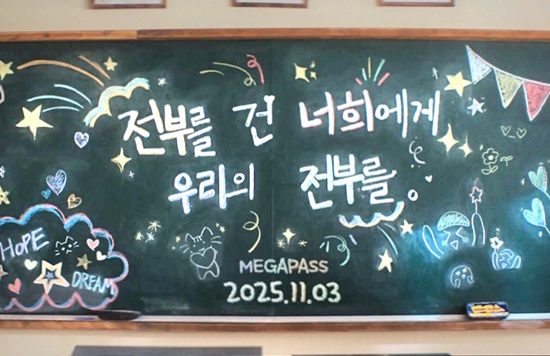 전부를 건 너희에게
우리의 전부를。
HOPE
DREAM
MEGAPASS
2025.11.03